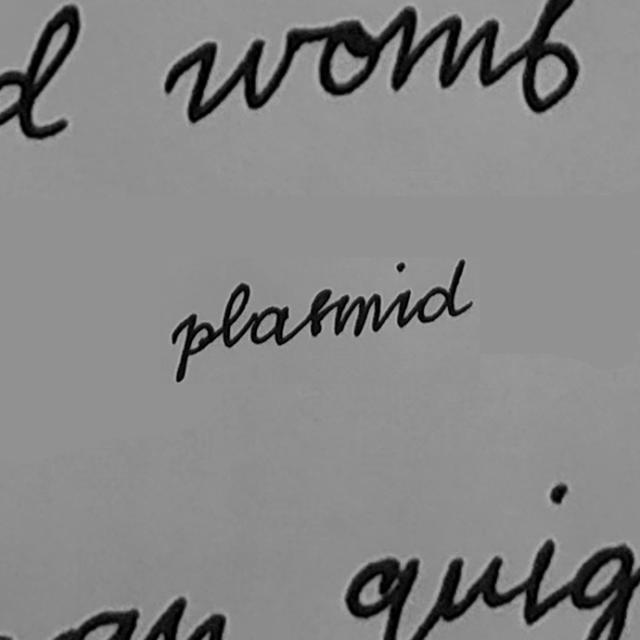 d womb
plasmid
quig